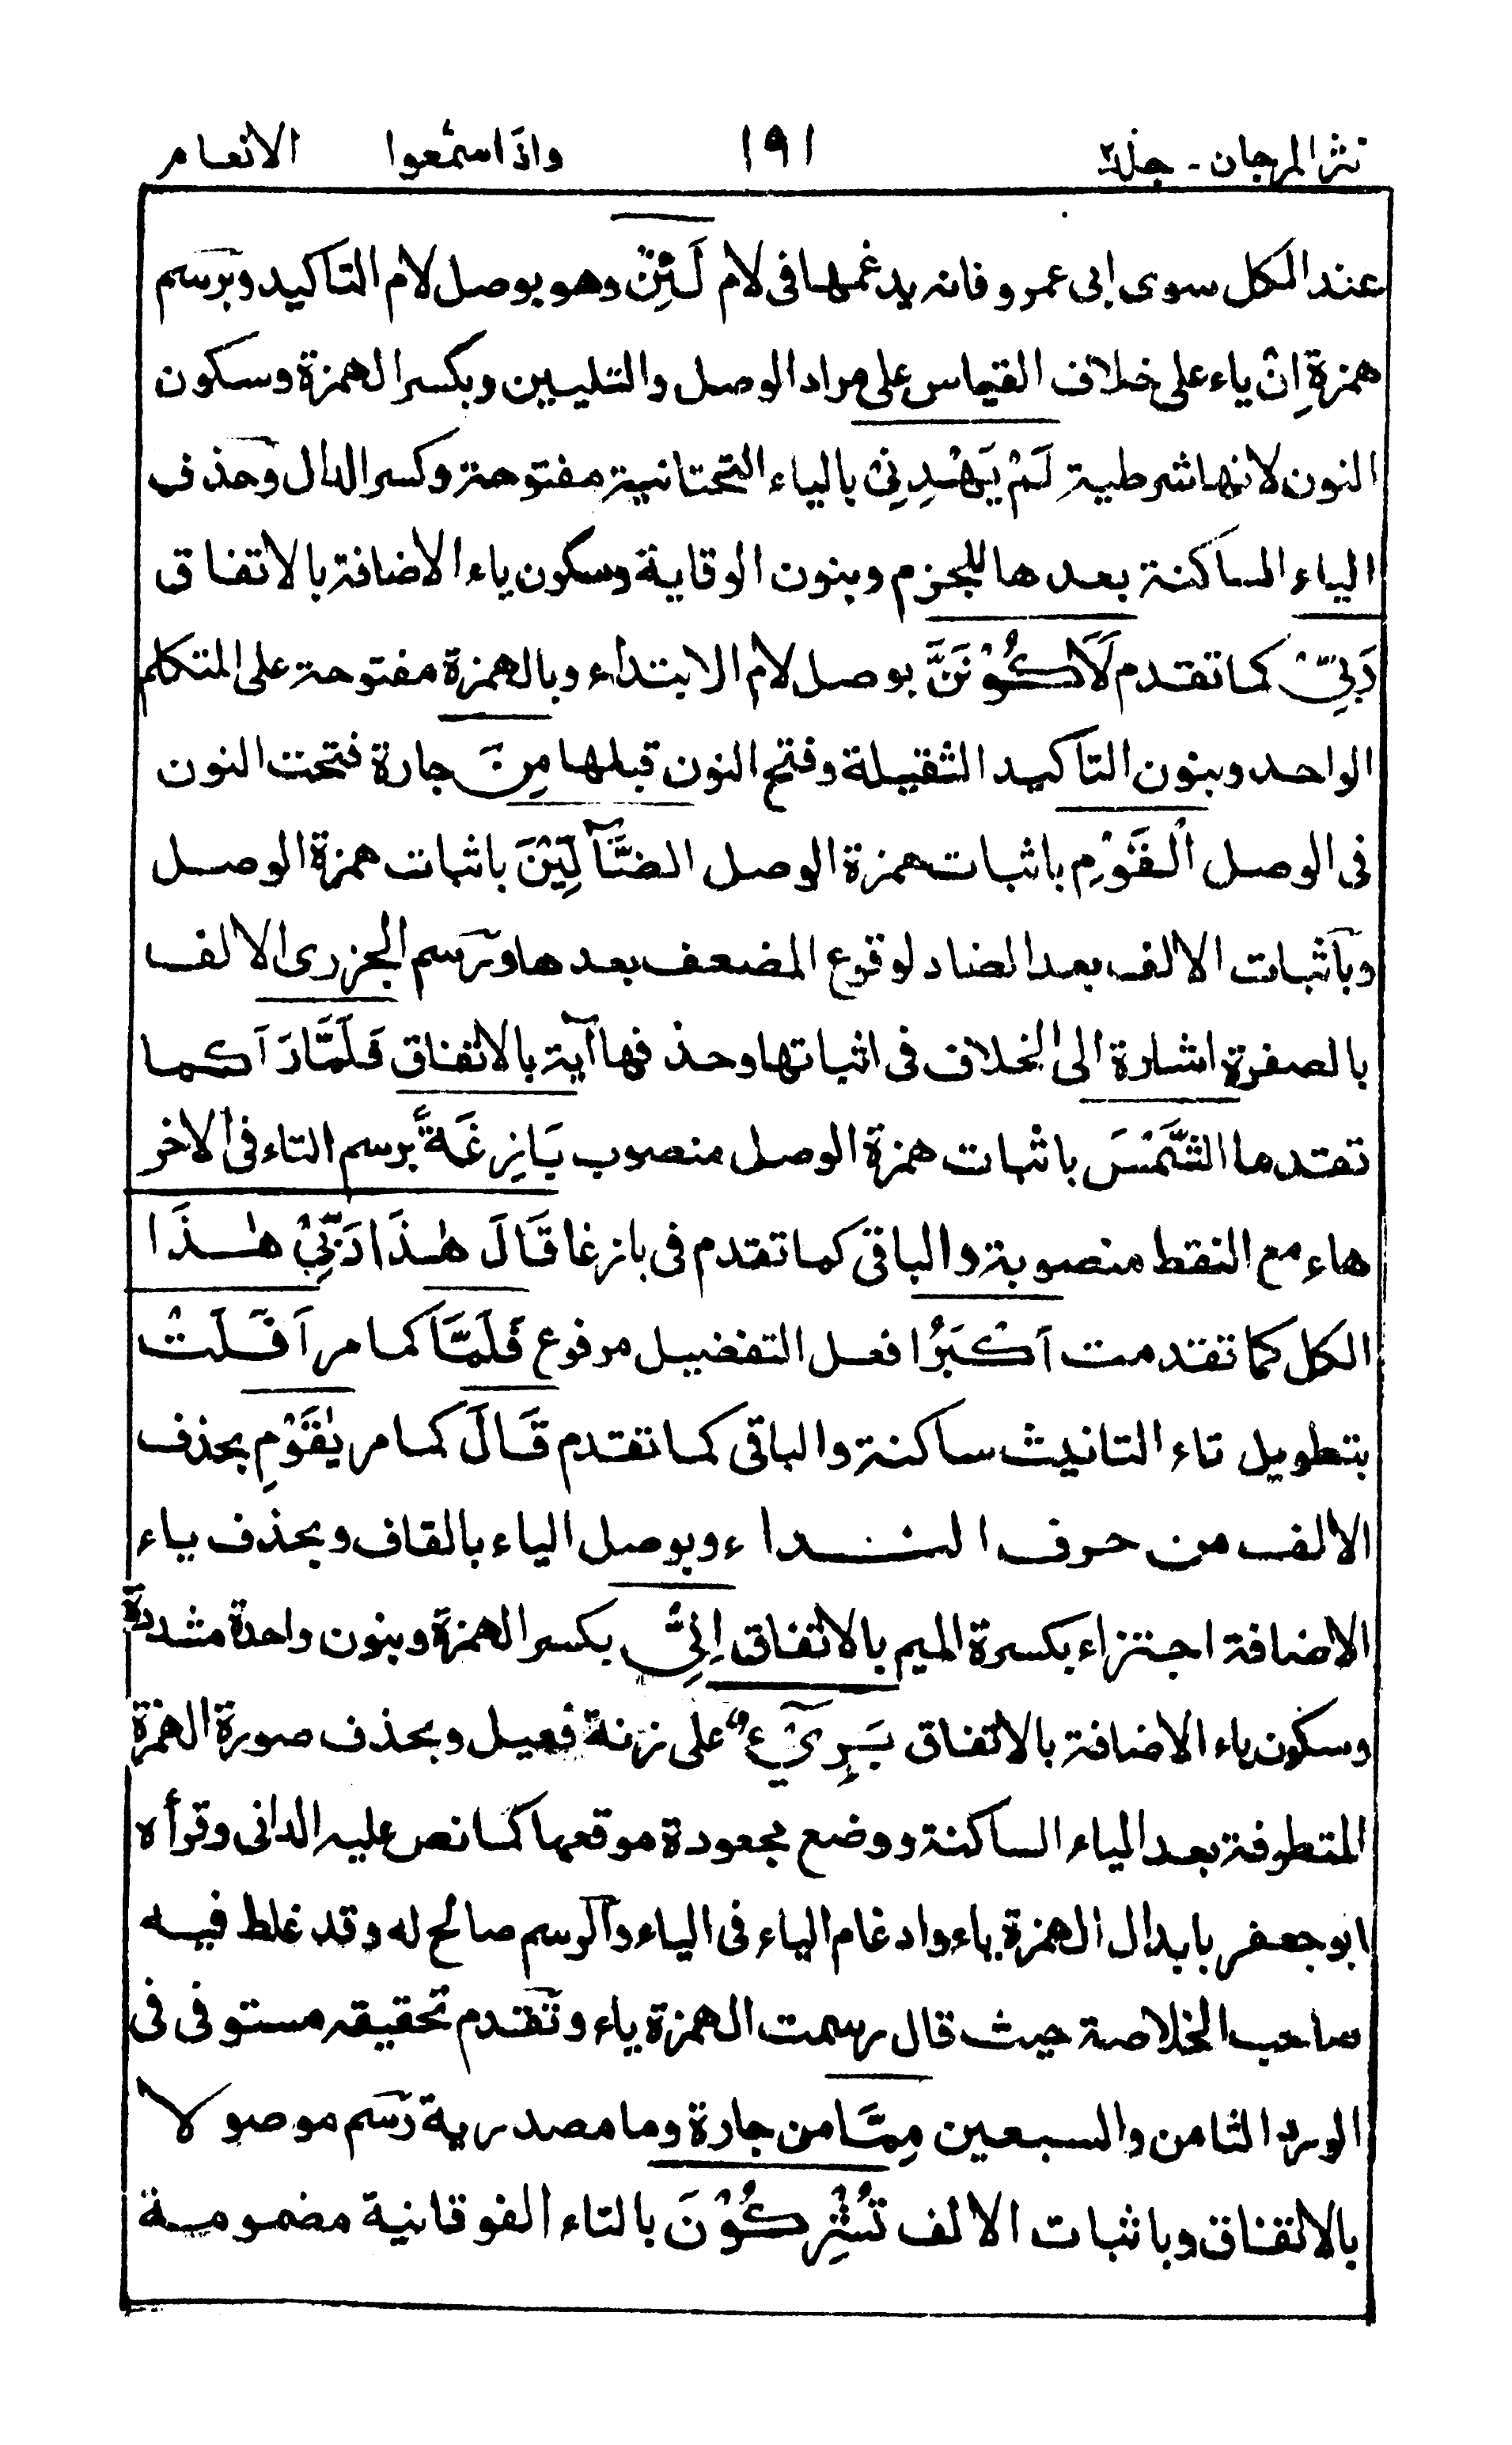 نثر المرجان - جلد٢ ١٩١ واذا سمعوا الانعام
عند الكل سوى ابى عمرو فانه يدغمها فى لام لَئِنْ وهو بوصل لام التاكيد وبرسم
همزة اِنْ ياء على خلاف القياس على مراد الوصل والتليين وبكسر الهمزة وسكون
النون لانها شرطية لَمْ يَهْدِنِىْ بالياء التحتانية مفتوحة وكسر الدال وحذف
الياء الساكنة بعدها للجزم وبنون الوقاية وسكون ياء الاضافة بالاتفاق
رَبِّىْ كما تقدم لَاَكُوْنَنَّ بوصل لام الابتداء وبالهمزة مفتوحة على المتكلم
الواحد وبنون التاكيد الثقيلة وفتح النون قبلها مِنَ جارة فتحت النون
فى الوصل الْقَوْمِ باثبات همزة الوصل الضَّآلِّيْنَ باثبات همزة الوصل
وباثبات الالف بعد الضاد لوقوع المضعف بعدها ورسم الجزرى الالف
بالصفرة اشارة الى الخلاف فى اثباتها وحذفها آية بالاتفاق فَلَمَّا رَاَ كما
تقدما الشَّمْسَ باثبات همزة الوصل منصوب بَازِغَةً برسم التاء فى الاخر
هاء مع النقط منصوبة والباقى كما تقدم فى بازغا قَالَ هٰذَا رَبِّىْ هٰذَا
الكل كما تقدمت اَكْبَرُ افعل التفضيل مرفوع فَلَمَّا كما مر اَفَلَتْ
بتطويل تاء التانيث ساكنة والباقى كما تقدم قَالَ كما مر يٰقَوْمِ بحذف
الالف من حرف النداء وبوصل الياء بالقاف وبحذف ياء
الاضافة اجتزاء بكسرة الميم بالاتفاق اِنِّىْ بكسر الهمزة وبنون واحدة مشددة
وسكون ياء الاضافة بالاتفاق بَرِىْٓءٌ على زنة فعيل وبحذف صورة الهمزة
المتطرفة بعد الياء الساكنة ووضع مجعودة موقعها كما نص عليه الدانى وقرأه
ابو جعفر بابدال الهمزة ياء وادغام الياء فى الياء والرسم صالح له وقد غلط فيه
صاحب الخلاصة حيث قال رسمت الهمزة ياء وتقدم تحقيقه مستوفى فى
الورد الثامن والسبعين مِمَّا من جارة وما مصدرية رسم موصولا
بالاتفاق وباثبات الالف تُشْرِكُوْنَ بالتاء الفوقانية مضمومة